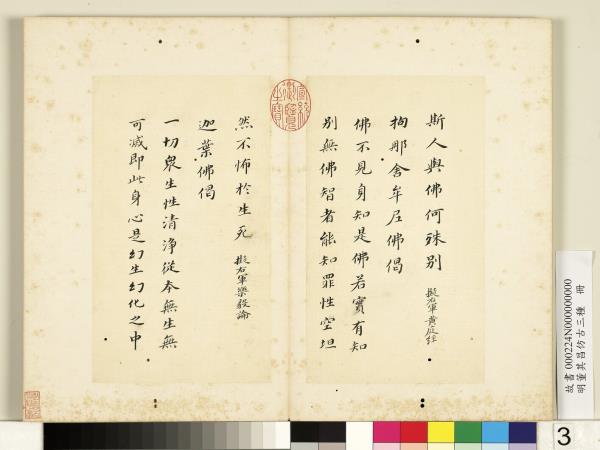 斯人與佛何殊別 擬右軍黃庭經
拘那含牟尼佛偈
佛不見身知是佛若實有知
別無佛智者能知罪性空坦
然不怖於生死 擬右軍樂毅論
迦葉佛偈
一切衆生性清淨從本無生無
可滅即此身心是幻生幻化之中
故書000224N000000000
明董其昌仿古三種 冊
3